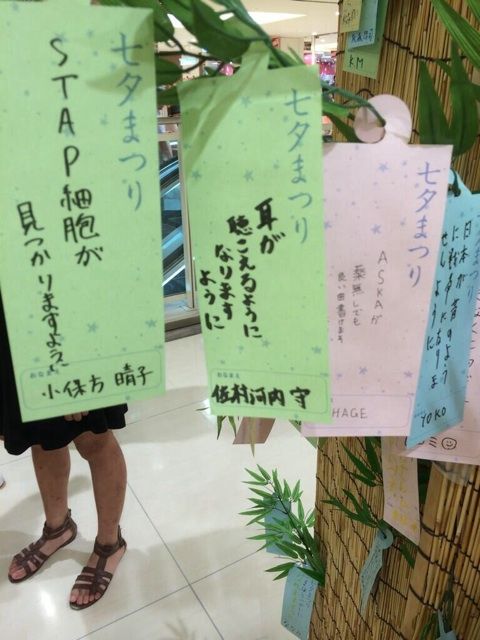 七夕まつり
STAP細胞が
見つかりますように
おなまえ
小保方 晴子
七夕まつり
耳が
聴こえるように
なります
ように
おなまえ
佐村河内 守
七夕まつり
ASKAが
薬無しでも
良い曲書けます
HAGE
七夕まつり
日本が昔のよう
に戦争になりま
せんように
YOKO
KM